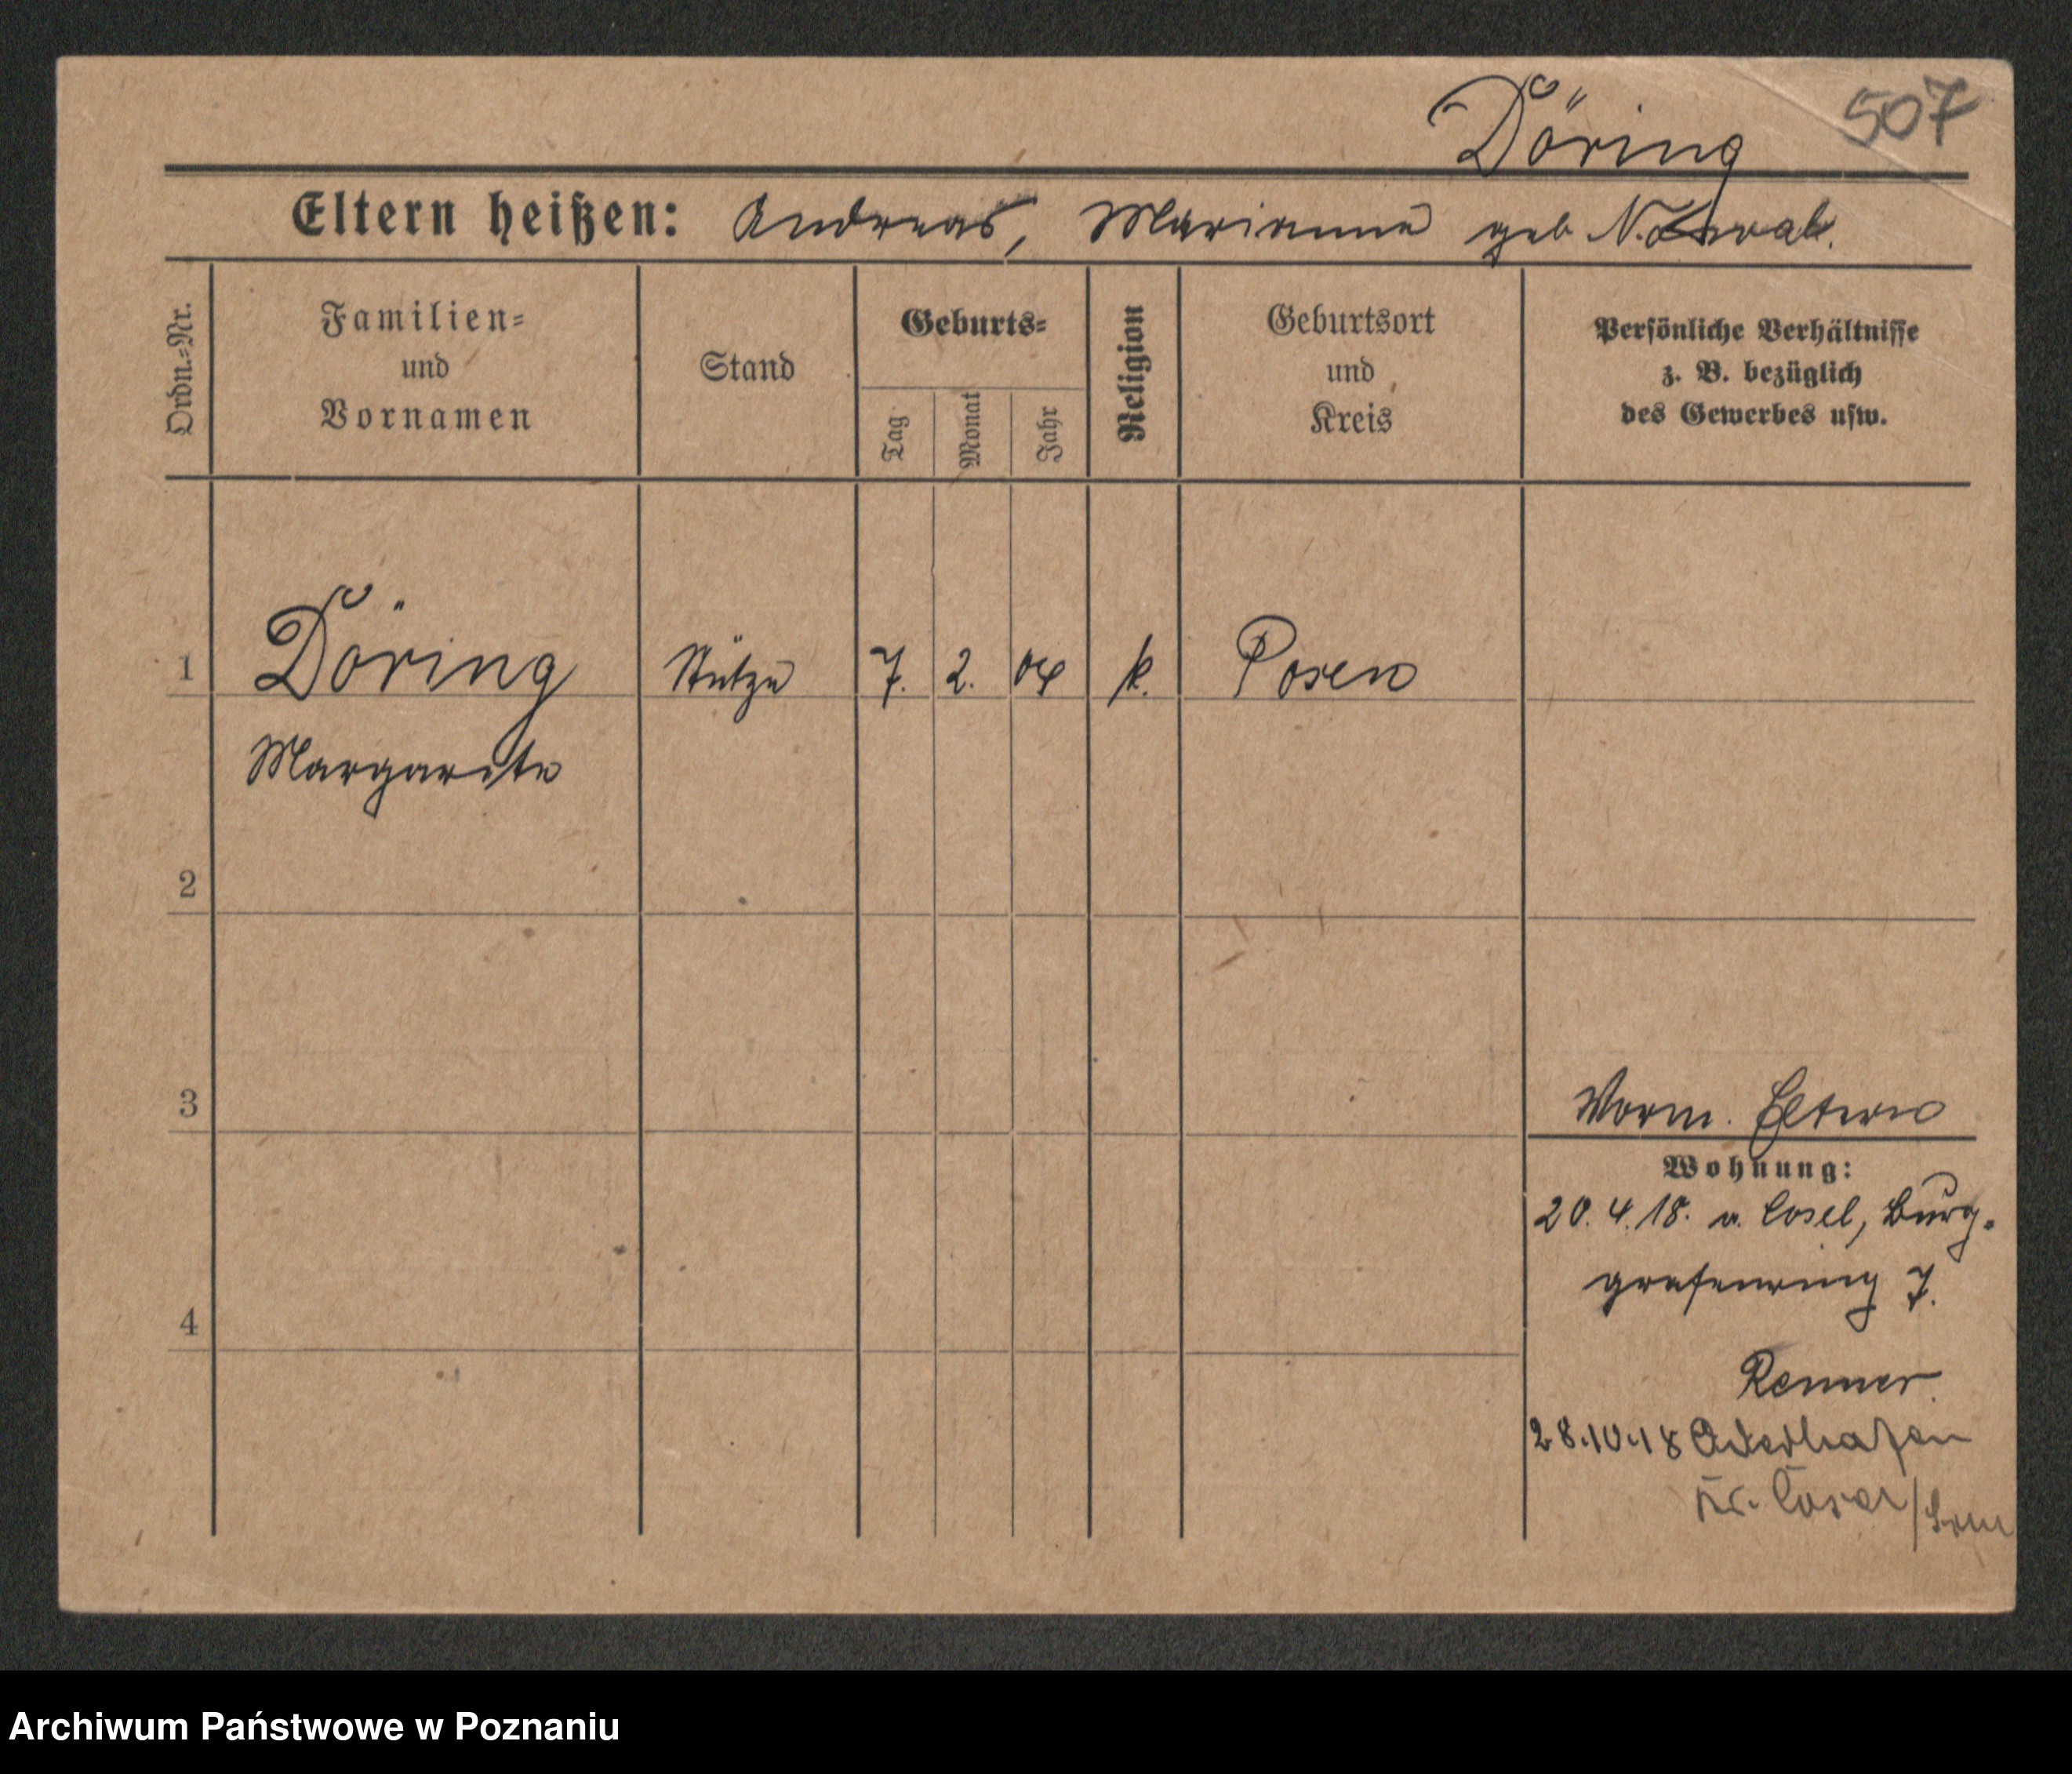 507
Döring
Eltern heißen: Andreas, Marianne geb
Ordn.=Nr.
Familien=
und
Vornamen
Stand
Geburts=
Tag
Monat
Jahr
Religion
Geburtsort
und
Kreis
Persönliche Verhältnisse
z. B. bezüglich
des Gewerbes usw.
1 Döring Stütze 7. 2. 04 k. Posen
Margarete
2
3
Vorm. Eltern
Wohnung:
20. 4. 18. v. Cosel, Burg-
grafenring 7.
4
Renner
28.10.18 Oderhafen
Kr. Cosel
Archiwum Państwowe w Poznaniu